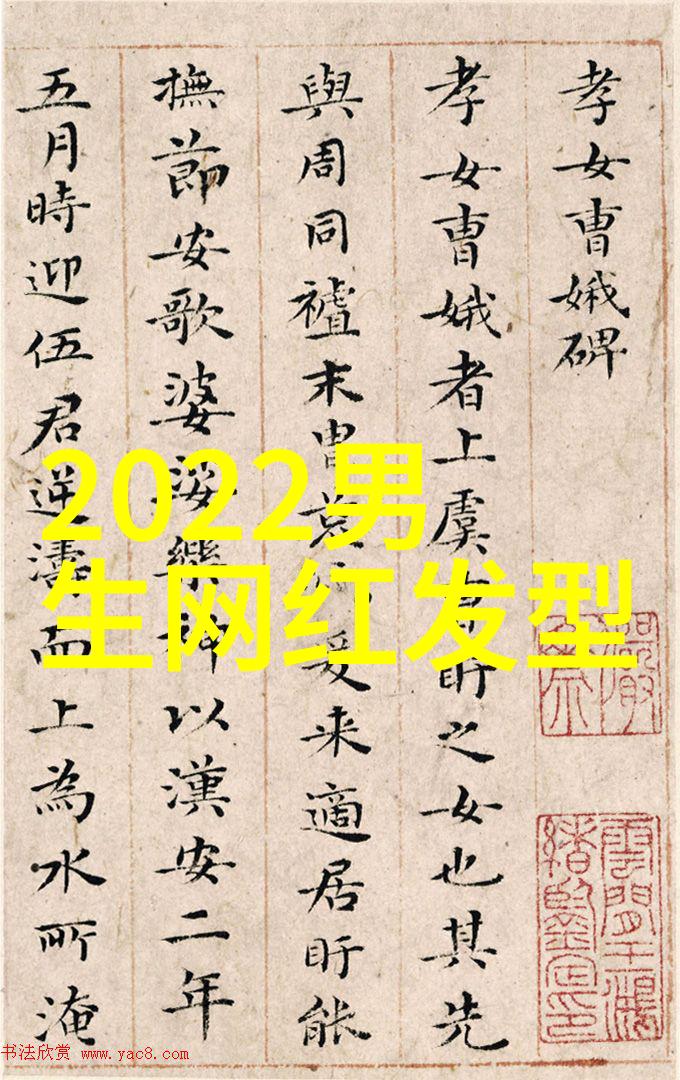 孝女曹娥碑
孝女曹娥者上虞曹盱之女也其先
與周同末胄荒爰来適居盱能
撫節安歌婆娑樂神以漢安二年
五月時迎伍君逆濤而上為水所淹
2022男
生网红发型
雲間王鴻緒鑒定印
书法欣赏 www.yac8.com